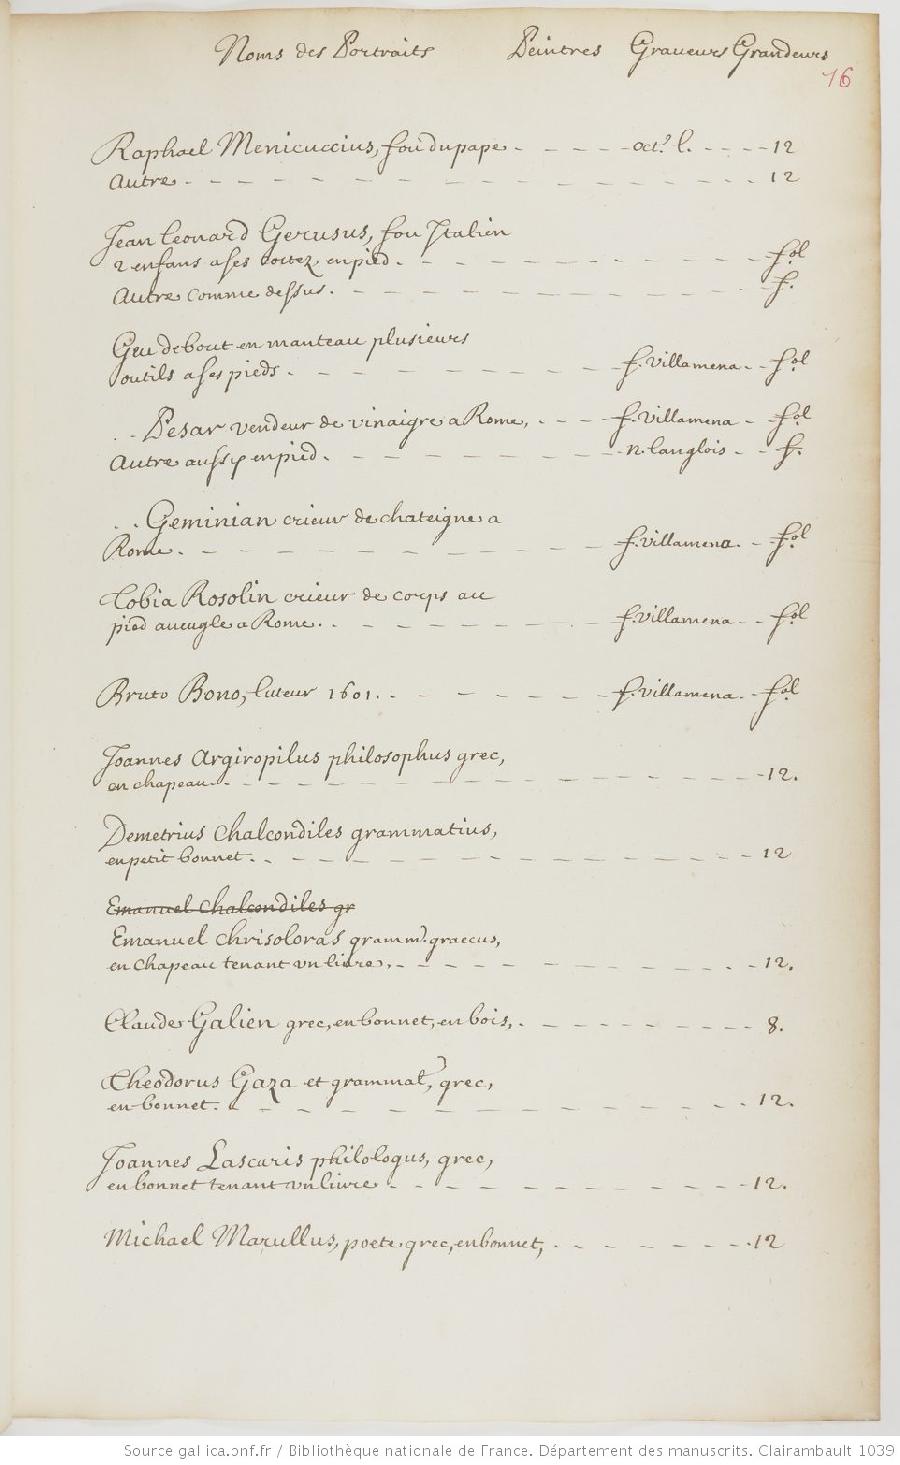 Noms des Portraits Peintres Graveurs Grandeurs
16
Raphael Menicuccius, fou du pape - - - - - oct.º l. - - - - 12
Autre - - - - - - - - - - - - - 12
Jean Leonard Gerusus, fou Italien
2 enfans a ses costez en pied - - - - - - - - - - fol
Autre comme dessus. - - - - - - - - - - f.
Geu debout en manteau plusieurs
outils a ses pieds - - - - - - - f. Villamena - - fol
.. Pesar vendeur de vinaigre a Rome, - - - - f. Villamena - fol
Autre aussy en pied. - - - - - - - n. langlois - - f.
.. Geminian crieur de chateigne a
Rome. - - - - - - - - - f. Villamena. - - fol
Tobia Rosolin crieur de corps au
pied aveugle a Rome. - - - - - - f. Villamena - - fol
Bruto Bono, luteur 1601. - - - - - - f. Villamena. - fol
Joannes Argiropilus philosophus grec,
en chapeau - - - - - - - - - - - - 12.
Demetrius Chalcondiles grammatius,
en petit bonnet. - - - - - - - - - - - 12
Emanuel Chalcondiles gr
Emanuel Chrisoloras gramm. graecus,
en Chapeau tenant vn livre, - - - - - - - - 12.
Claude Galien grec, en bonnet, en bois, - - - - - - - 8.
Theodorus Gaza et grammat, grec,
en bonnet. - - - - - - - - - - - 12.
Joannes Lascaris philologus, grec,
en bonnet tenant vn livre - - - - - - - - - 12.
Michael Marullus, poete, grec, en bonnet, - - - - - - - 12
Source gallica.bnf.fr / Bibliothèque nationale de France. Département des manuscrits. Clairambault 1039